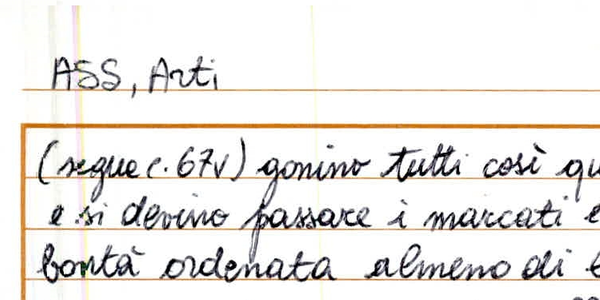 ASS, Arti
(segue c. 67v) gonino tutti così qu
e si devino passare i marcati e
bontà ordenata almeno di